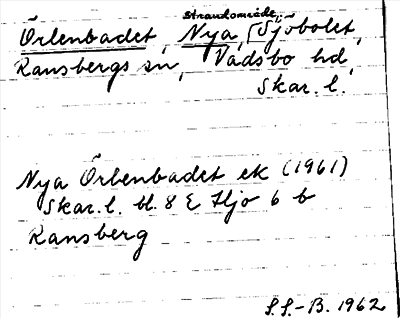 strandområde,
Örlenbadet, Nya, Sjöbolet,
Ransbergs sn, Vadsbo hd,
Skar. l.
Nya Örlenbadet ek (1961)
Skar. l. bl. 8 E Hjo 6 b
Ransberg
S.S.-B. 1962